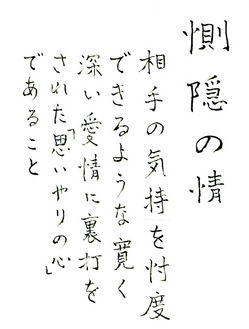 惻隠の情
相手の気持を忖度
できるような寛く
深い愛情に裏打を
された「思いやりの心」
であること